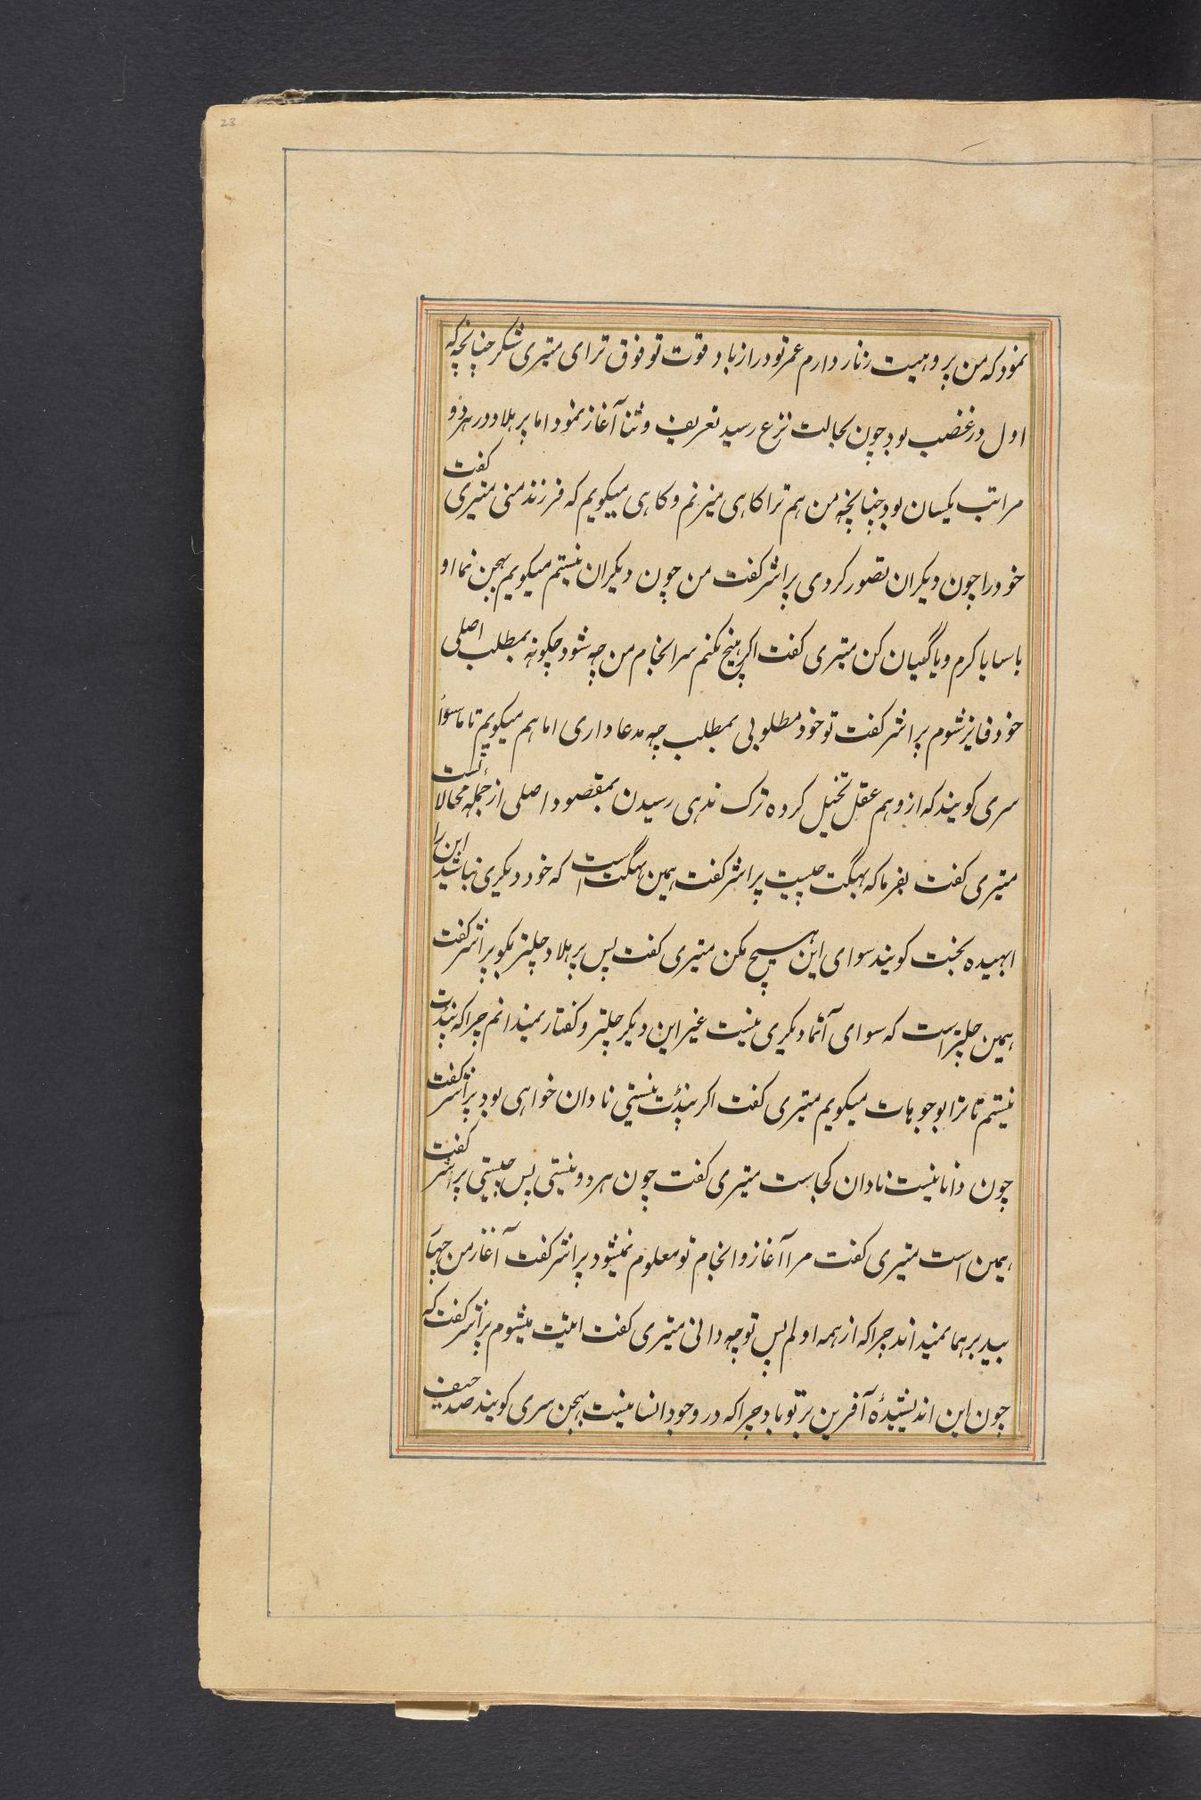 23
نمود که من پر وهیبت زنار دارم عمر تو دراز باد قوت تو فوق ترای متیری شکر چنانچه که
اول در غضب بود چون بحالت نزع رسید تعریف و ثنا آغاز نمود اما پر هلاد در هر دو
مراتب یکسان بود چنانچه من هم ترا کاهی میزنم و کاهی میکویم که فرزند منی متیری کفت
خود را چون دیکران تصور کردی پراشر کفت من چون دیکران نیستم میکویم بهجن نما او
باسا یا کرم و یا گیان کن متیری کفت اکر هیچ نکنم سرانجام من چه شود چکونه بمطلب اصلی
خود فایز شوم پراشر کفت تو خود مطلوبی بمطلب چه مدعا داری اما هم میکویم تا ماسوا
سری کویند که از وهم عقل تخیل کرده ترک ندهی رسیدن بمقصود اصلی از جمله محالاتست
متیری کفت بفرما که بهگت چیست پراشر کفت همین بهگت است که خود دیکری نباشید این را
ابهیده بخت کویند سوای این هیچ مکن متیری کفت پس پر هلاد چلتر بکو پراشر کفت
همین چلتر است که سوای آتما دیکری نیست غیر این دیکر چلتر و کفتار نمیدانم چرا که پندت
نیستم تا ترا بوجوهات میکویم متیری کفت اکر پندت نیستی نادان خواهی بود پراشر کفت
چون دانا نیست نادان کجاست متیری کفت چون هر دو نیستی پس چیستی پراشر کفت
همین است متیری کفت مرا آغاز و انجام تو معلوم نمیشود پراشر کفت آغاز من چهار
بید برهما نمیداند چرا که از همه اولم پس تو چه دانی متیری کفت اتیت میشوم پراشر کفت که
چون این اندیشیدهٔ آفرین بر تو باد چرا که در وجود انسا نیست بهجن سری کویند صد حیف